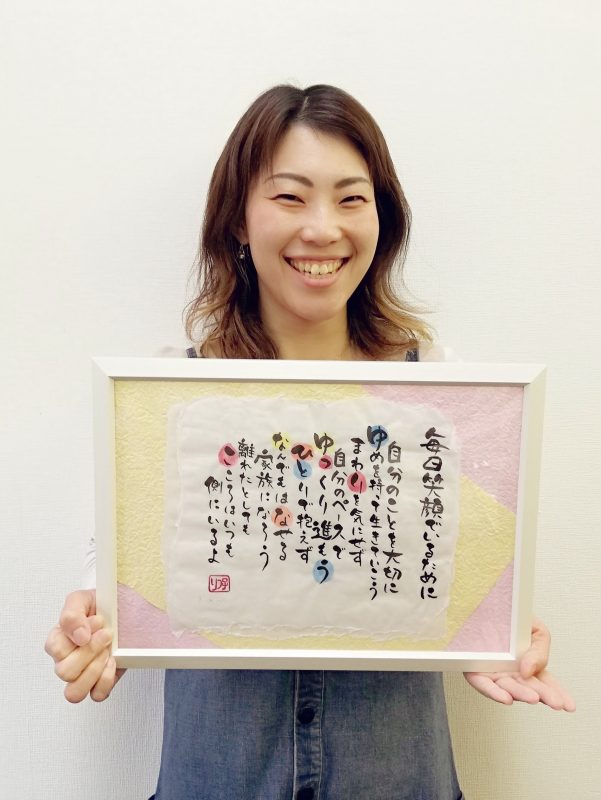 毎日笑顔でいるために
自分のことを大切に
ゆめを持って生きていこう
まわりを気にせず
自分のペースで
ゆっくり進もう
ひとりで抱えず
なんでもはなせる
家族になろう
離れたとしても
こころはいつも
側にいるよ